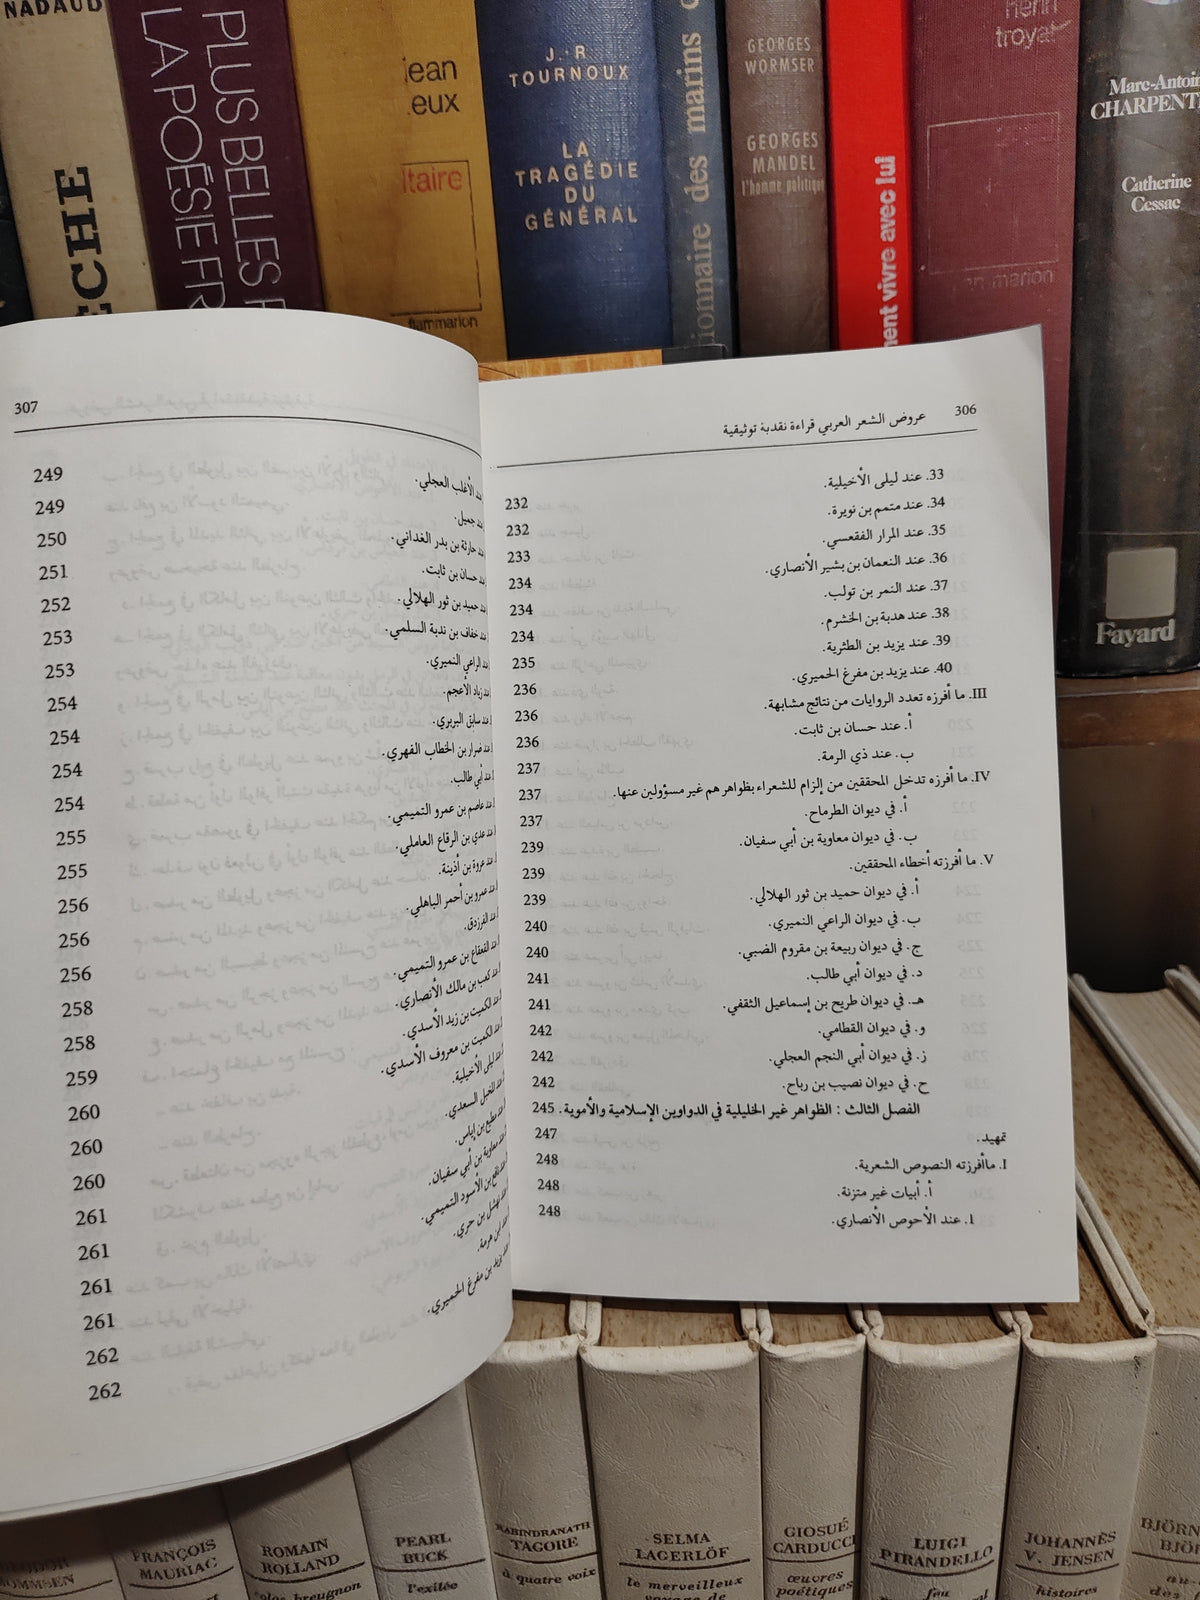 NADAUD
ECHE
PLUS BELLES
LA POÉSIE FR
jean
eux
ltaire
flammarion
J.-R.
TOURNOUX
LA
TRAGÉDIE
DU
GÉNÉRAL
ionnaire des marins
GEORGES
WORMSER
GEORGES
MANDEL
l'homme politique
ment vivre avec lui
henri
troyat
flammarion
Marc-Antoin
CHARPENT
Catherine
Cessac
Fayard
306 عروض الشعر العربي قراءة نقدية توثيقية
33. عند ليلى الأخيلية. 232
34. عند متمم بن نويرة. 232
35. عند المرار الفقعسي. 233
36. عند النعمان بن بشير الأنصاري. 234
37. عند النمر بن تولب. 234
38. عند هدبة بن الخشرم. 234
39. عند يزيد بن الطثرية. 235
40. عند يزيد بن مفرغ الحميري. 236
III. ما أفرزه تعدد الروايات من نتائج مشابهة. 236
أ. عند حسان بن ثابت. 236
ب. عند ذي الرمة. 237
IV. ما أفرزه تدخل المحققين من إلزام للشعراء بظواهر هم غير مسؤولين عنها. 237
أ. في ديوان الطرماح. 237
ب. في ديوان معاوية بن أبي سفيان. 239
V. ما أفرزته أخطاء المحققين. 239
أ. في ديوان حميد بن ثور الهلالي. 239
ب. في ديوان الراعي النميري. 240
ج. في ديوان ربيعة بن مقروم الضبي. 240
د. في ديوان أبي طالب. 241
هـ. في ديوان طريح بن إسماعيل الثقفي. 241
و. في ديوان القطامي. 242
ز. في ديوان أبي النجم العجلي. 242
ح. في ديوان نصيب بن رباح. 242
الفصل الثالث : الظواهر غير الخليلية في الدواوين الإسلامية والأموية. 245
تمهيد. 247
I. ماأفرزته النصوص الشعرية. 248
أ. أبيات غير متزنة. 248
1. عند الأحوص الأنصاري. 248
307
عند الأغلب العجلي. 249
عند جميل. 249
عند حارثة بن بدر الغداني. 250
عند حسان بن ثابت. 251
عند حميد بن ثور الهلالي. 252
عند خفاف بن ندبة السلمي. 253
عند الراعي النميري. 253
عند زياد الأعجم. 254
عند سابق البربري. 254
عند ضرار بن الخطاب الفهري. 254
عند أبي طالب. 254
عند عاصم بن عمرو التميمي. 255
عند عدي بن الرقاع العاملي. 255
عند عروة بن أذينة. 256
عند عمرو بن أحمر الباهلي. 256
عند الفرزدق. 256
عند القعقاع بن عمرو التميمي. 258
عند كعب بن مالك الأنصاري. 258
عند الكميت بن زيد الأسدي. 259
عند الكميت بن معروف الأسدي. 260
عند ليلى الأخيلية. 260
عند المخبل السعدي. 260
عند مطيع بن إياس. 261
عند معاوية بن أبي سفيان. 261
عند نافع بن الأسود التميمي. 261
عند نهشل بن حري. 261
عند ابن هرمة. 262
عند يزيد بن مفرغ الحميري. 262
FRANÇOIS
MAURIAC
ROMAIN
ROLLAND
colas breugnon
PEARL
BUCK
l'exilée
RABINDRANATH
TAGORE
à quatre voix
SELMA
LAGERLÖF
le merveilleux
voyage de
GIOSUÉ
CARDUCCI
œuvres
poétiques
LUIGI
PIRANDELLO
feu
JOHANNÈS
V. JENSEN
histoires
BJÖRN
BJÖR
au-